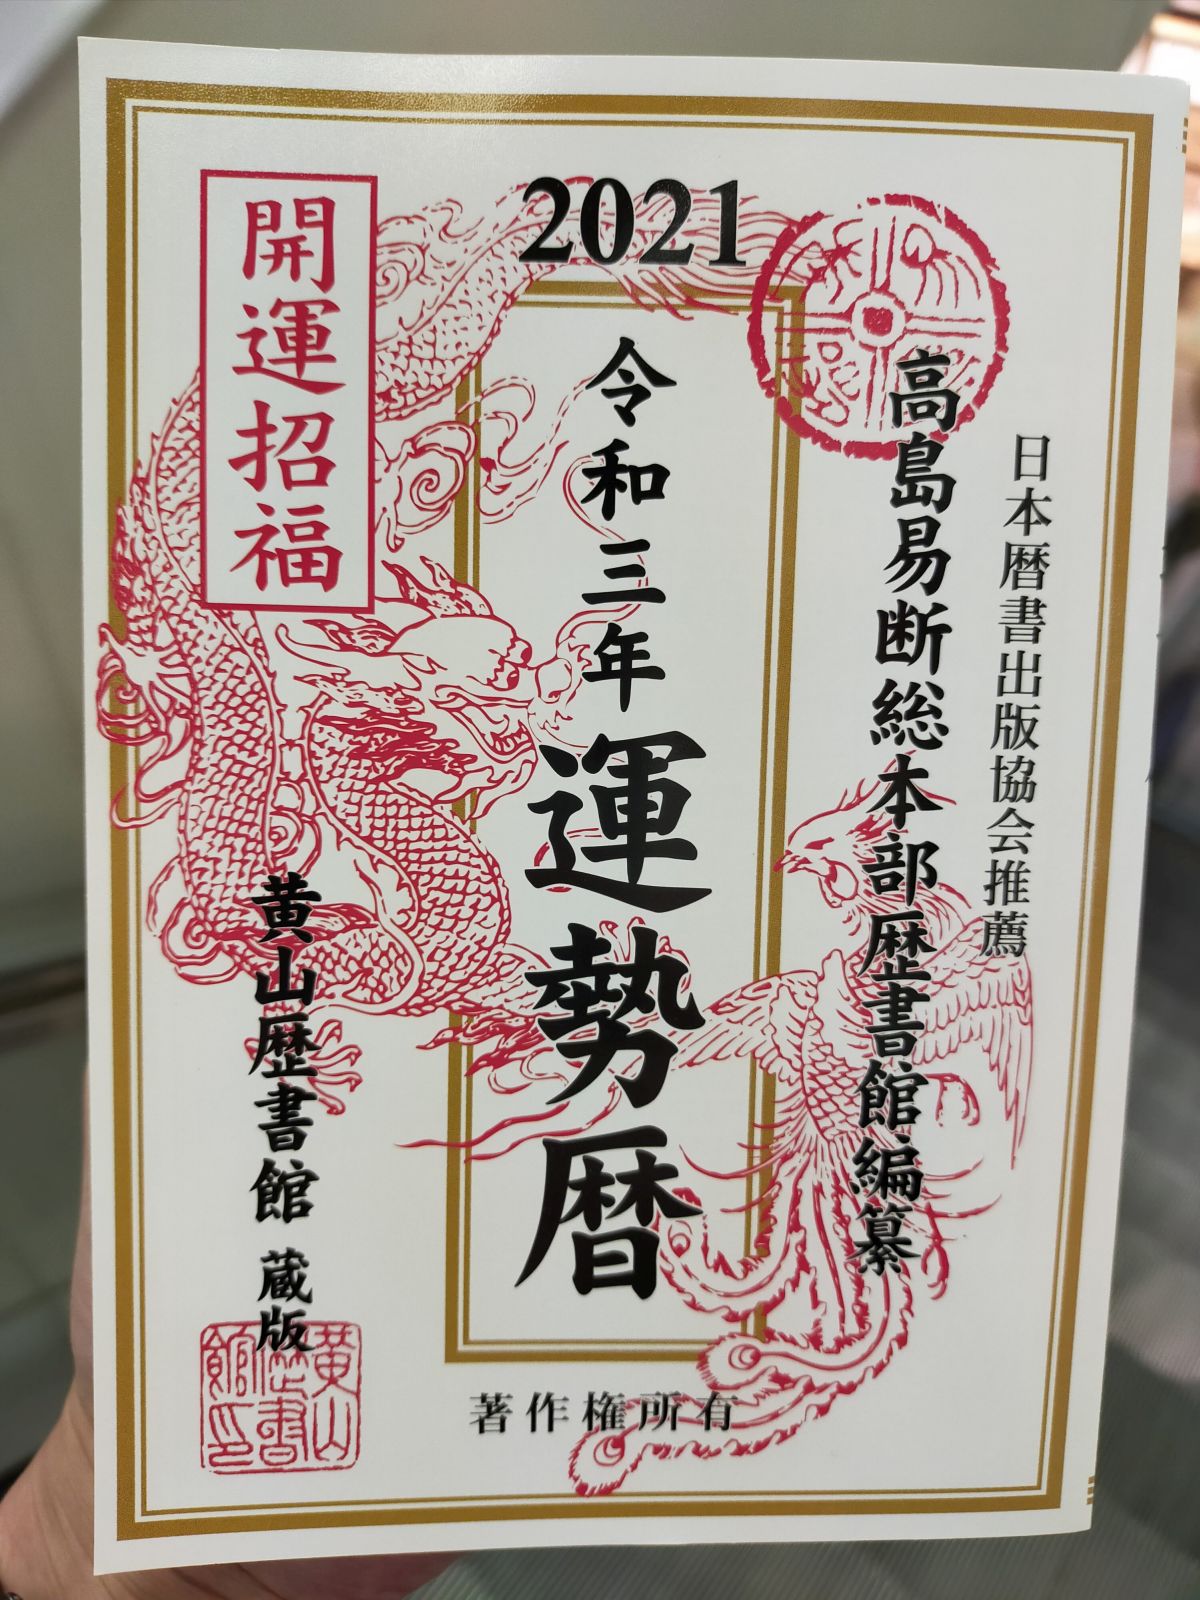 2021
日本暦書出版協会推薦
高島易断総本部歴書館編纂
令和三年
運勢暦
開運招福
黄山歴書館 蔵版
黄山
歴書
館印
著作権所有